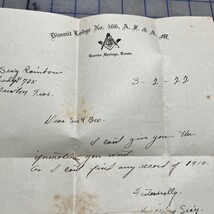 Dimmit Lodge No. 566, A. F. & A. M.
Carrizo Springs, Texas.
Rainbow
Lodge 785
Newton Texas.
3-2-22
Dear Sir & Bro.
I can't give you the
you want
I can't find any record of 1910.
Fraternally